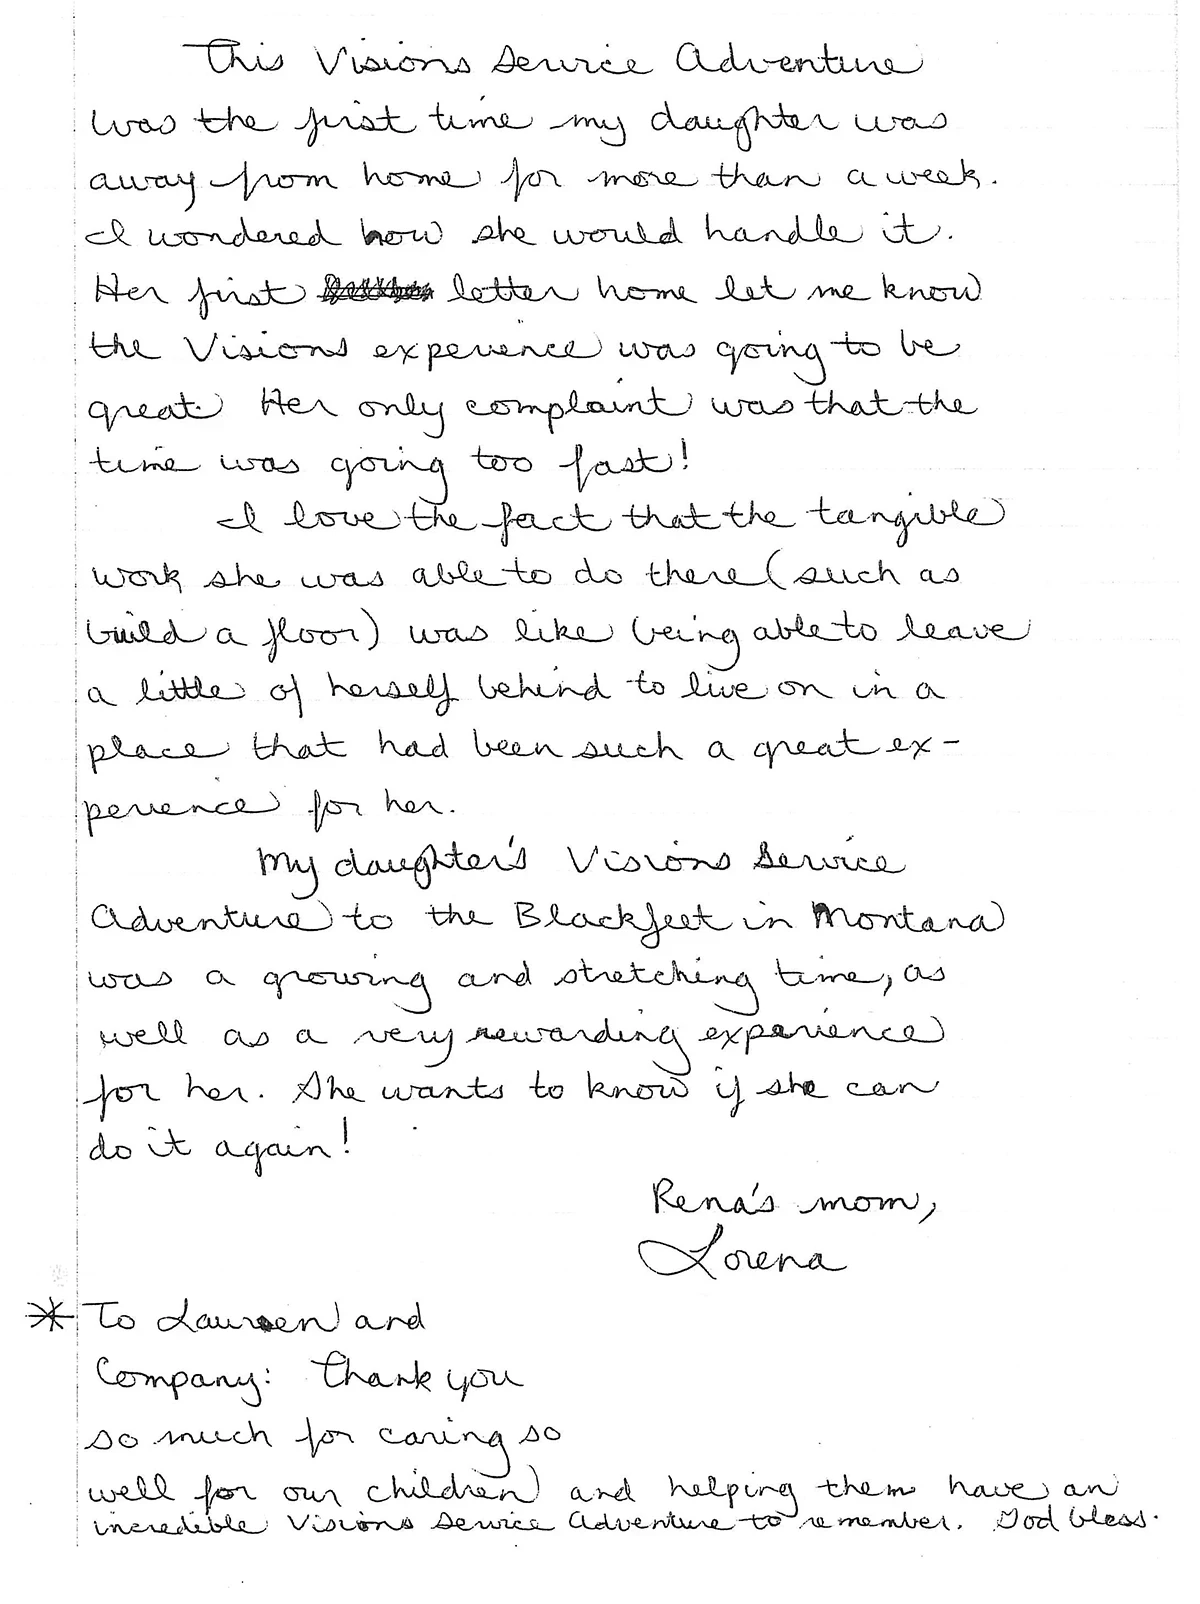 This Visions Service Adventure
was the first time my daughter was
away from home for more than a week.
I wondered how she would handle it.
Her first letter home let me know
the Visions experience was going to be
great. Her only complaint was that the
time was going too fast!
I love the fact that the tangible
work she was able to do there (such as
build a floor) was like being able to leave
a little of herself behind to live on in a
place that had been such a great ex-
perience for her.
My daughter's Visions Service
Adventure to the Blackfeet in Montana
was a growing and stretching time, as
well as a very rewarding experience
for her. She wants to know if she can
do it again!
Rena's mom,
Lorena
* To Laureen and
Company: Thank you
so much for caring so
well for our children and helping them have an
incredible Visions Service Adventure to remember. God bless.